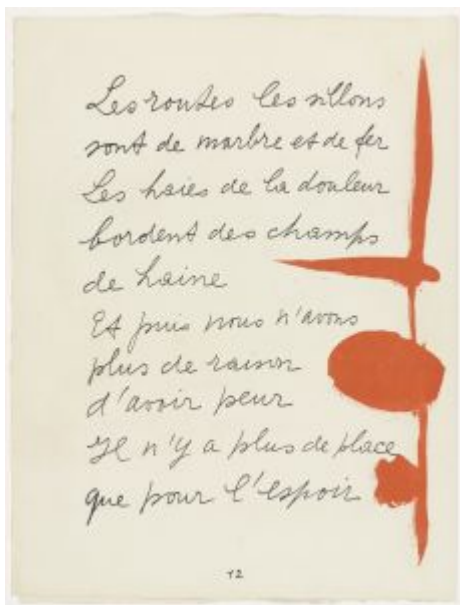 Les routes les sillons
sont de marbre et de fer
Les haies de la douleur
bordent des champs
de haine
Et puis nous n'avons
plus de raison
d'avoir peur
Il n'y a plus de place
que pour l'espoir
12